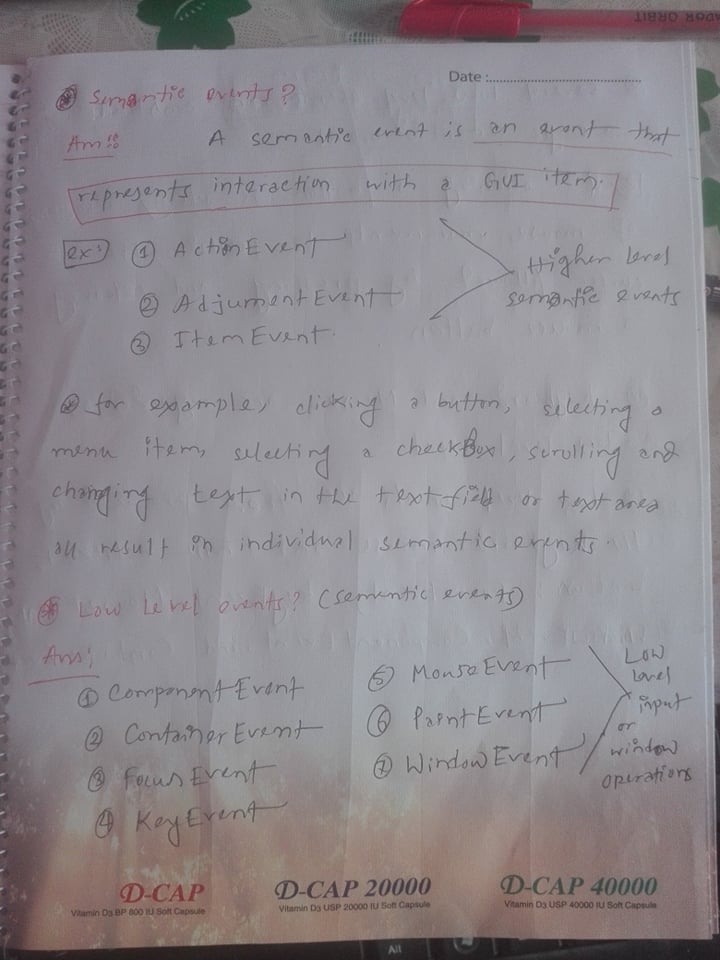 ADOR ORBIT
Date :
Semantic events?
Ans:
A semantic event is an event that
represents interaction with a GUI item.
ex: ① ActionEvent
② AdjumentEvent
③ ItemEvent.
Higher level
semantic events
for example, clicking a button, selecting a
menu item, selecting a checkBox, scrolling and
changing text in the textfield or textarea
all result in individual semantic events.
Low Level events? (semantic events)
Ans:
① ComponentEvent
② ContainerEvent
③ FocusEvent
④ KeyEvent
⑤ MouseEvent
⑥ PaintEvent
⑦ WindowEvent
Low
level
input
or
window
operations
D-CAP
Vitamin D3 BP 800 IU Soft Capsule
D-CAP 20000
Vitamin D3 USP 20000 IU Soft Capsule
D-CAP 40000
Vitamin D3 USP 40000 IU Soft Capsule
Alt